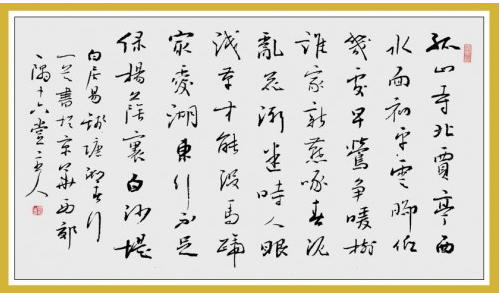 孤山寺北賈亭西
水面初平雲腳低
幾處早鶯爭暖樹
誰家新燕啄春泥
亂花漸迷時人眼
淺草才能沒馬蹄
最愛湖東行不足
綠楊蔭裏白沙堤
白居易錢塘湖春行
書於京華西郊
一隅十六堂主人